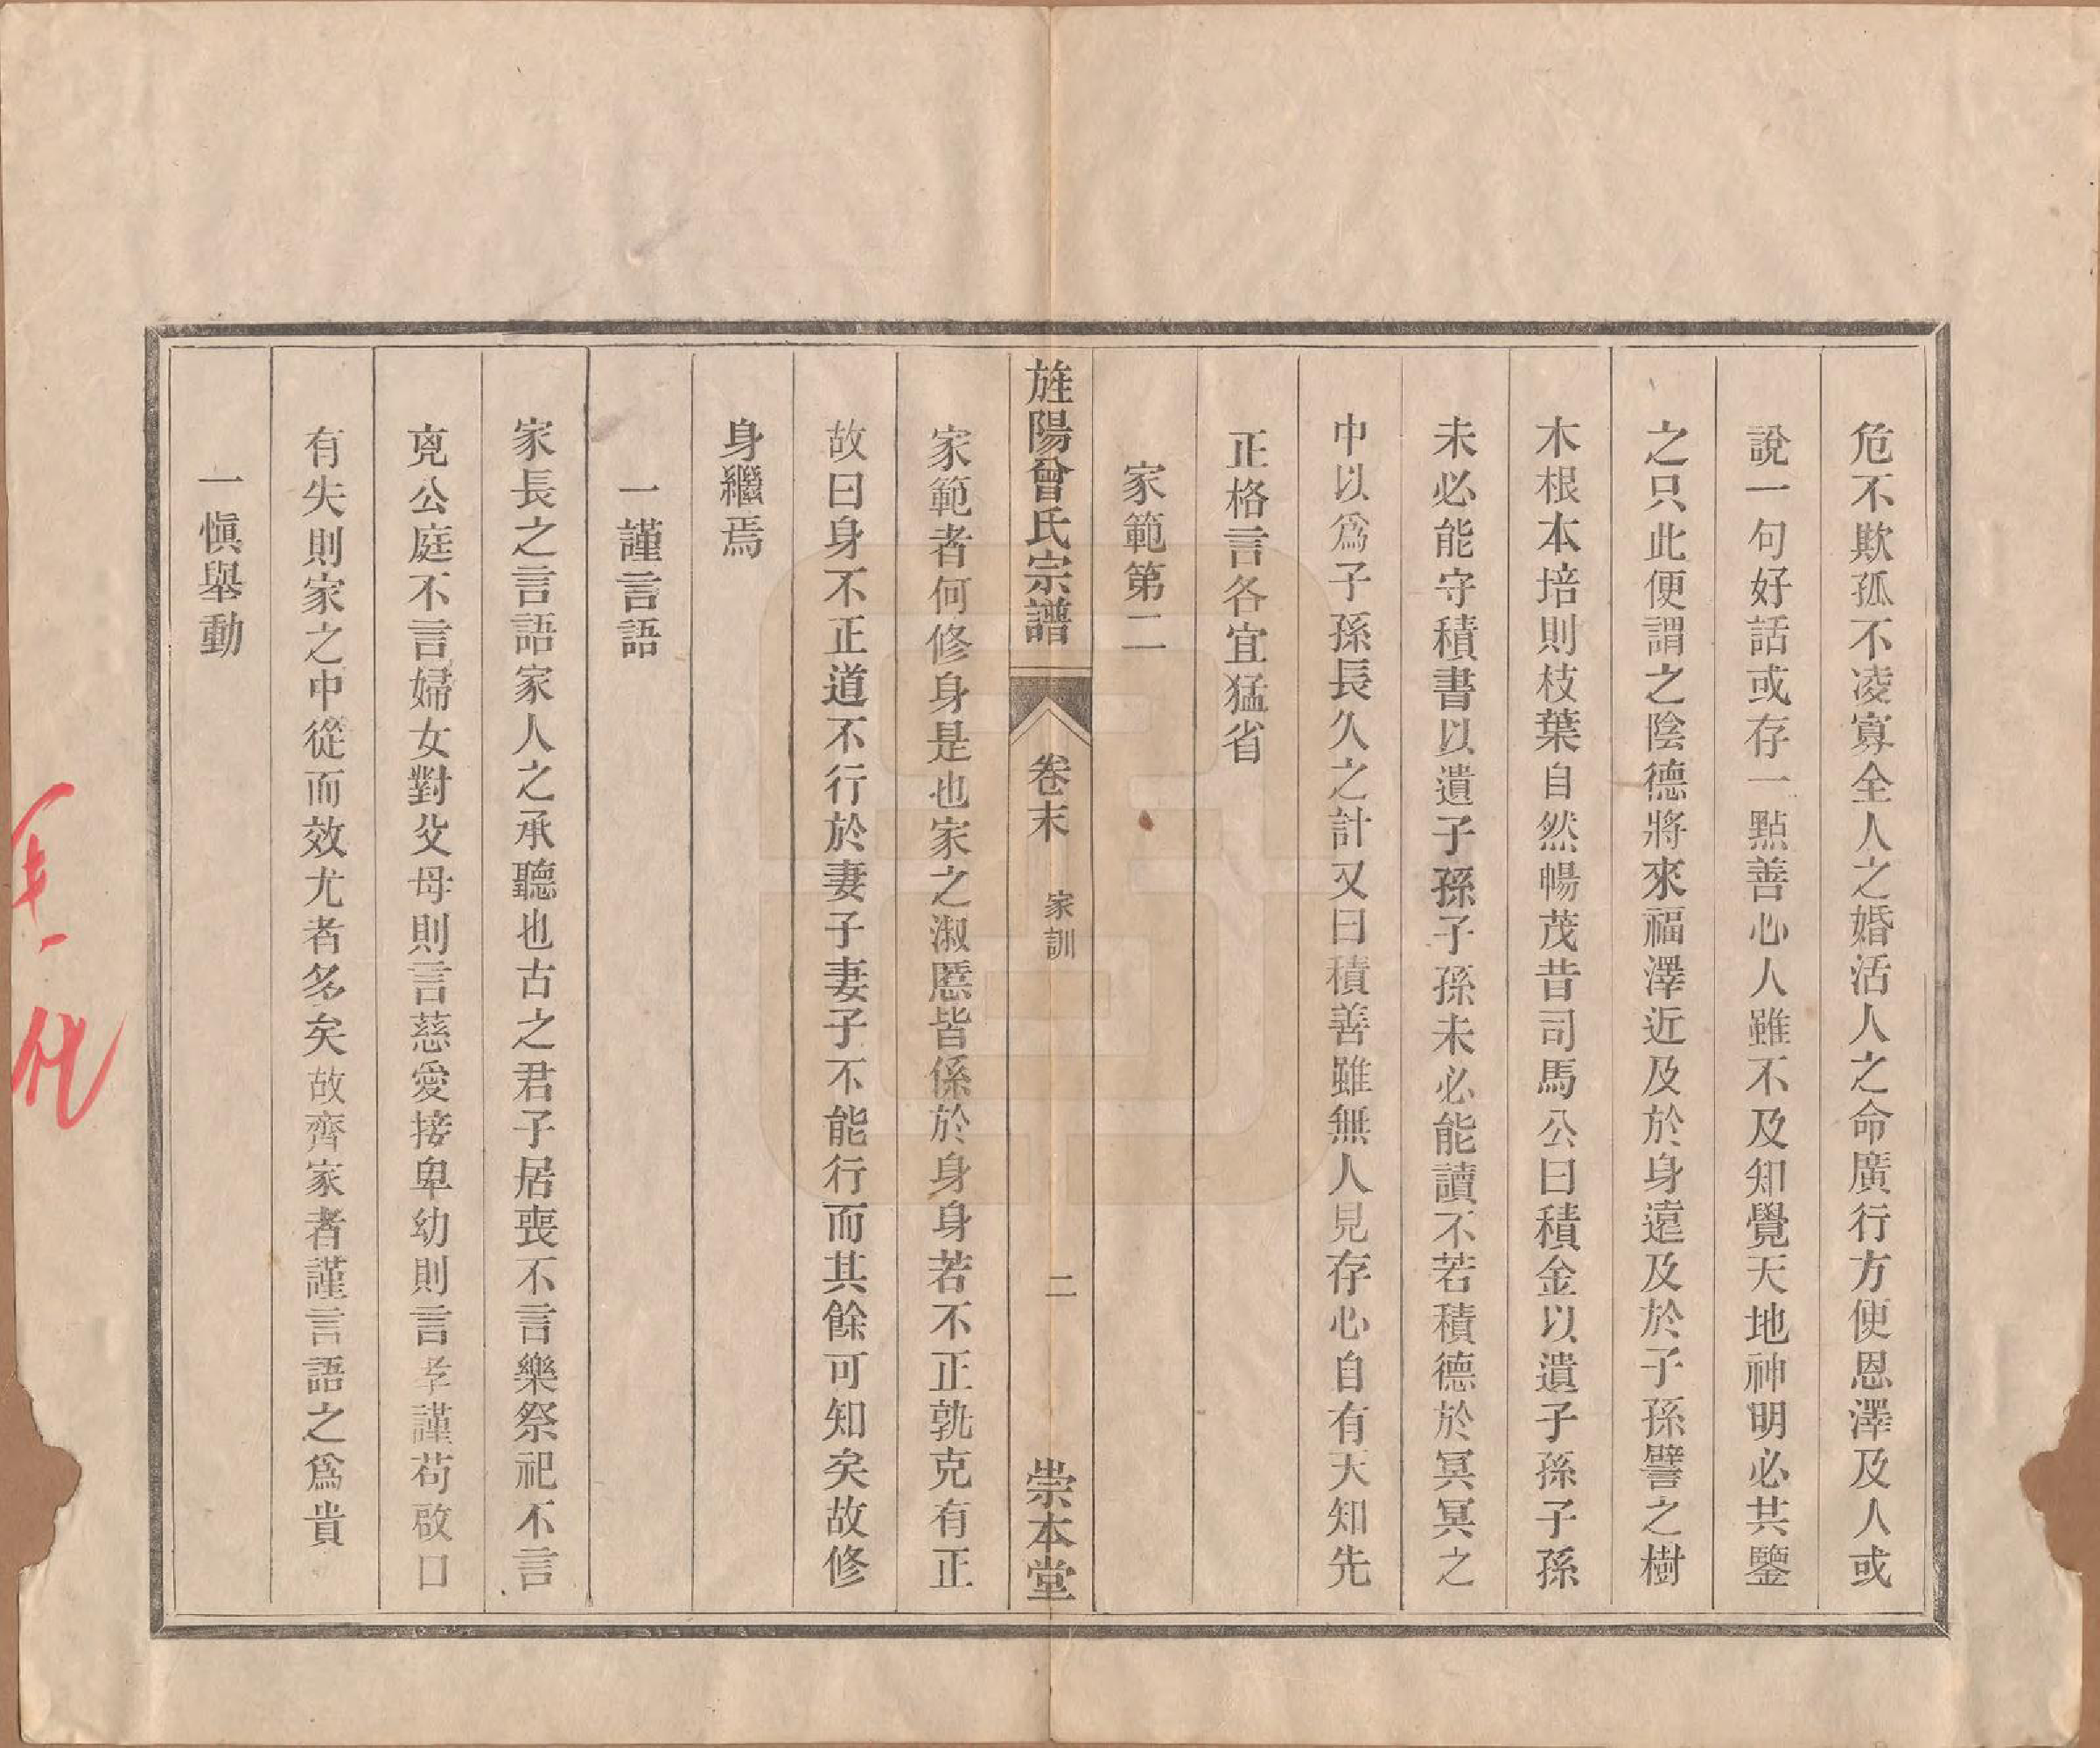 危不欺孤不凌寡全人之婚活人之命廣行方便恩澤及人或
說一句好話或存一點善心人雖不及知覺天地神明必共鑒
之只此便謂之陰德將來福澤近及於身遠及於子孫譬之樹
木根本培則枝葉自然暢茂昔司馬公曰積金以遺子孫子孫
未必能守積書以遺子孫子孫未必能讀不若積德於冥冥之
中以爲子孫長久之計又曰積善雖無人見存心自有天知先
正格言各宜猛省
家範第二
旌陽曾氏宗譜
卷末
家訓
二
崇本堂
家範者何修身是也家之淑慝皆係於身身若不正孰克有正
故曰身不正道不行於妻子妻子不能行而其餘可知矣故修
身繼焉
一謹言語
家長之言語家人之承聽也古之君子居喪不言樂祭祀不言
㐫公庭不言婦女對父母則言慈愛接卑幼則言孝謹苟啟口
有失則家之中從而效尤者多矣故齊家者謹言語之爲貴
一愼舉動